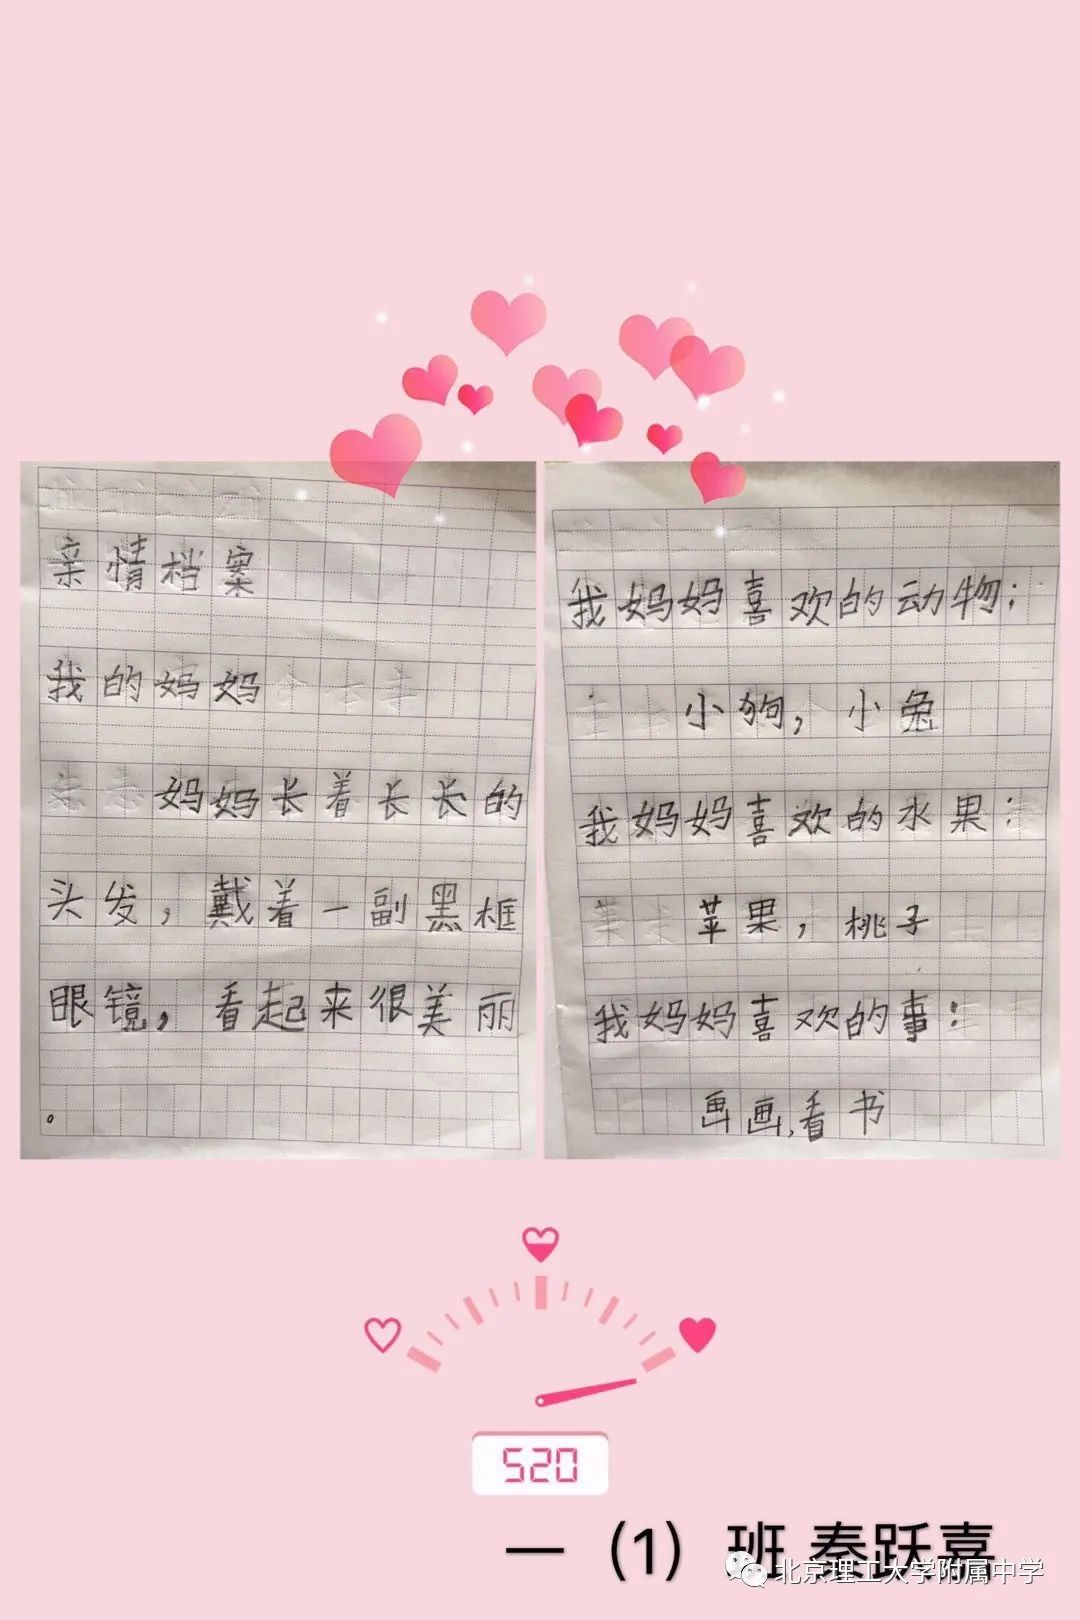 亲情档案
我的妈妈
妈妈长着长长的
头发，戴着一副黑框
眼镜，看起来很美丽
。
我妈妈喜欢的动物：
小狗，小兔
我妈妈喜欢的水果：
苹果，桃子
我妈妈喜欢的事：
画画，看书
520
一（1）班 秦跃嘉
北京理工大学附属中学